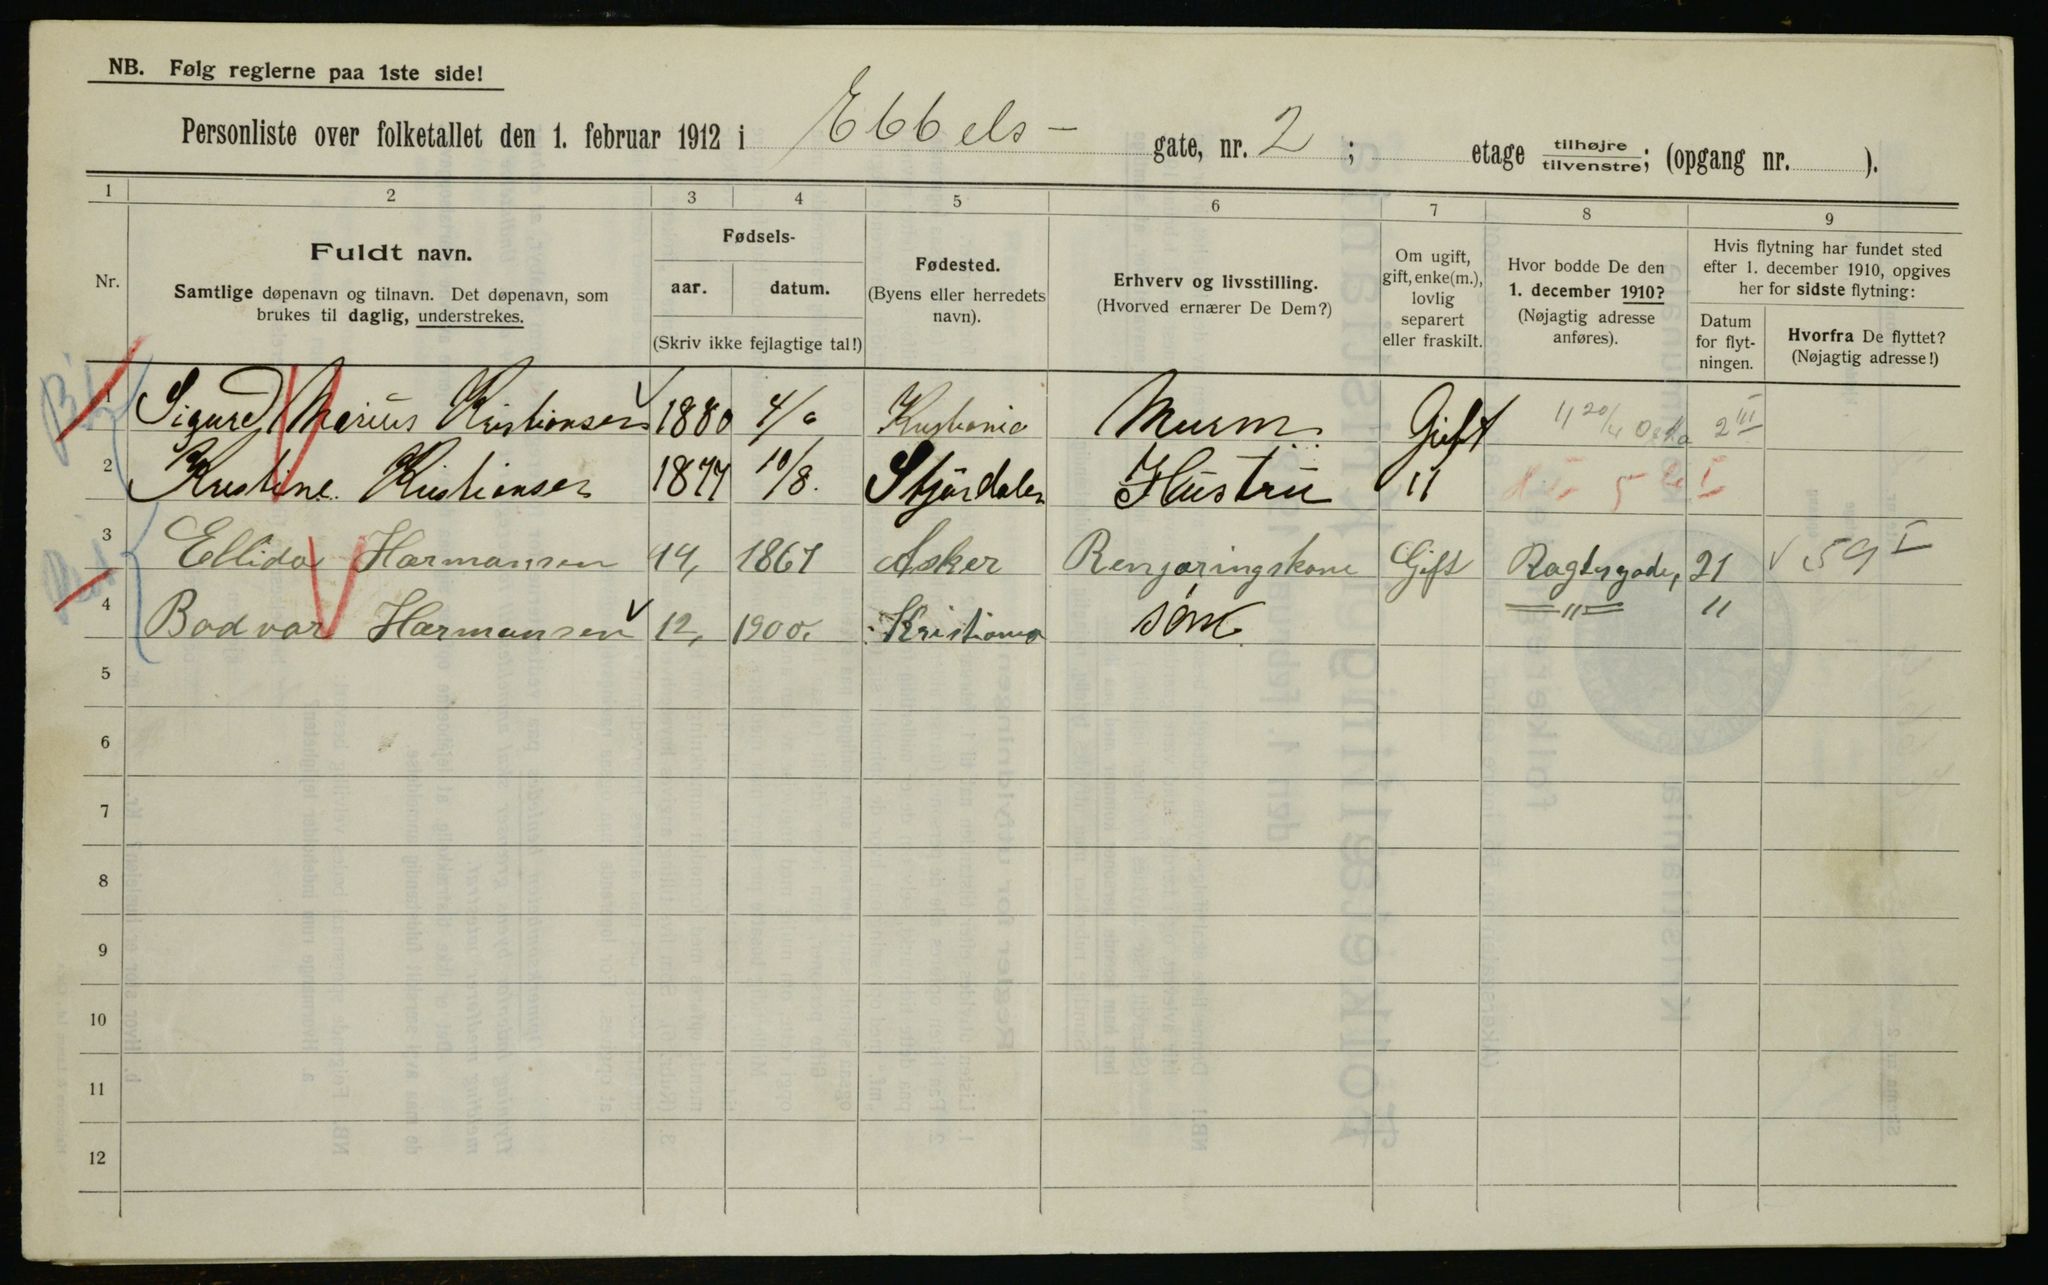 NB. Følg reglerne paa 1ste side!
Personliste over folketallet den 1. februar 1912 i Ebbels- gate, nr. 2 ; etage tilhøjre tilvenstre; (opgang nr. ).
1 2 3 4 5 6 7 8 9
Nr.
Fuldt navn.
Samtlige døpenavn og tilnavn. Det døpenavn, som
brukes til daglig, understrekes.
Fødsels-
aar. datum.
(Skriv ikke fejlagtige tal!)
Fødested.
(Byens eller herredets
navn).
Erhverv og livsstilling.
(Hvorved ernærer De Dem?)
Om ugift,
gift, enke(m.),
lovlig
separert
eller fraskilt.
Hvor bodde De den
1. december 1910?
(Nøjagtig adresse
anføres).
Hvis flytning har fundet sted
efter 1. december 1910, opgives
her for sidste flytning:
Datum
for flyt-
ningen.
Hvorfra De flyttet?
(Nøjagtig adresse!)
1 Sigurd Marius Kristiansen 1880 4/6 Kristiania Murm Gift 2 III
2 Kristine Kristiansen 1877 10/8. Stjørdalen Hustru " 5 I
3 Ellida Harmansen 14, 1867 Asker Rengøringskone Gift 21 59 I
4 Bodvar Harmansen 12, 1900. Kristiania søn " "
5
6
7
8
9
10
11
12